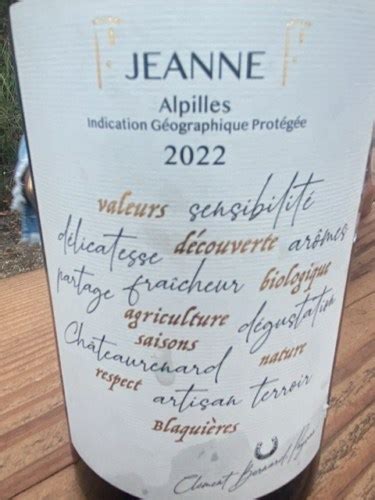 JEANNE
Alpilles
Indication Géographique Protégée
2022
valeurs sensibilité
délicatesse découverte arômes
partage fraîcheur biologique
agriculture dégustation
saisons
Châteaurenard nature
respect artisan terroir
Blaquières
Clément Bernard